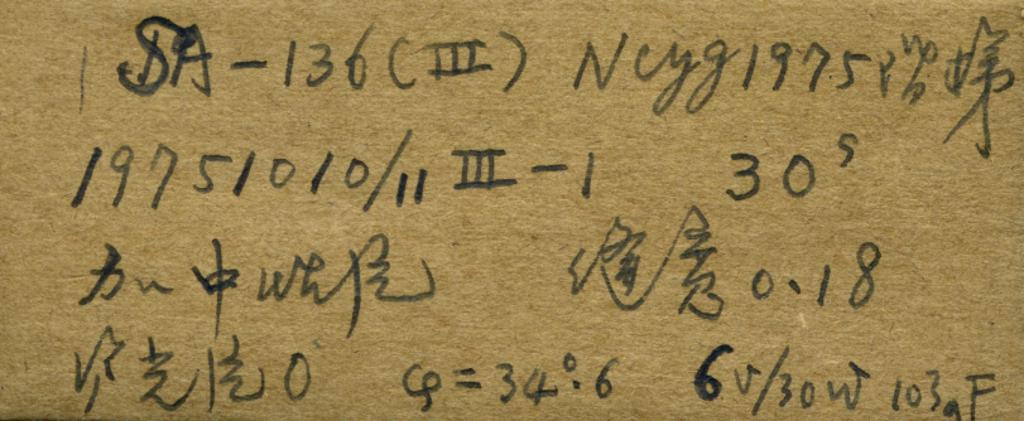 SA-136(III) NCyg 1975 谱第
19751010/11 III-1 30ˢ
加中性 缝宽 0.18
光 0 φ=34°.6 6V/30W 103aF